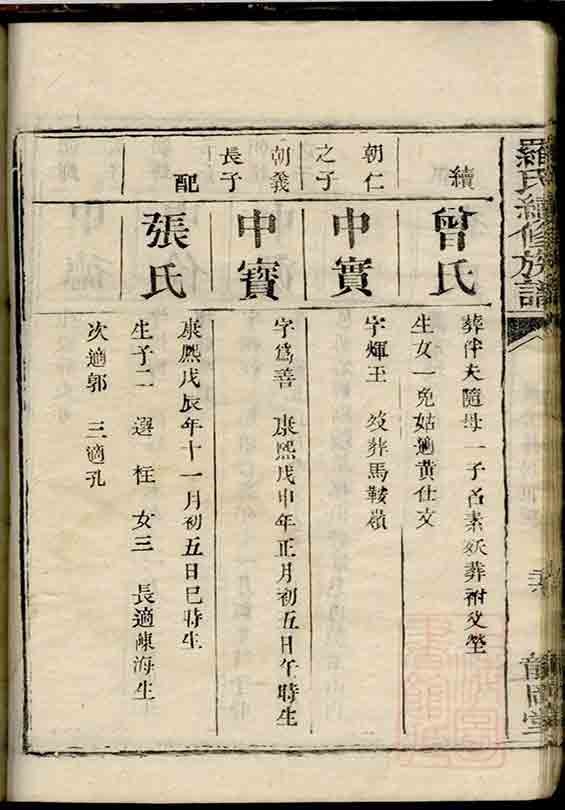 羅氏續修族譜
續
曾氏
葬伴夫隨母一子名素妖葬祔父塋
生女一兔姑適黄仕文
朝仁
之子
申實
字輝玉 歿葬馬鞍嶺
朝義
長子
申寶
字爲善 康熙戊申年正月初五日午時生
配
張氏
康熙戊辰年十一月初五日巳時生
生子二 選 枉 女三 長適陳海生
次適郭 三適孔